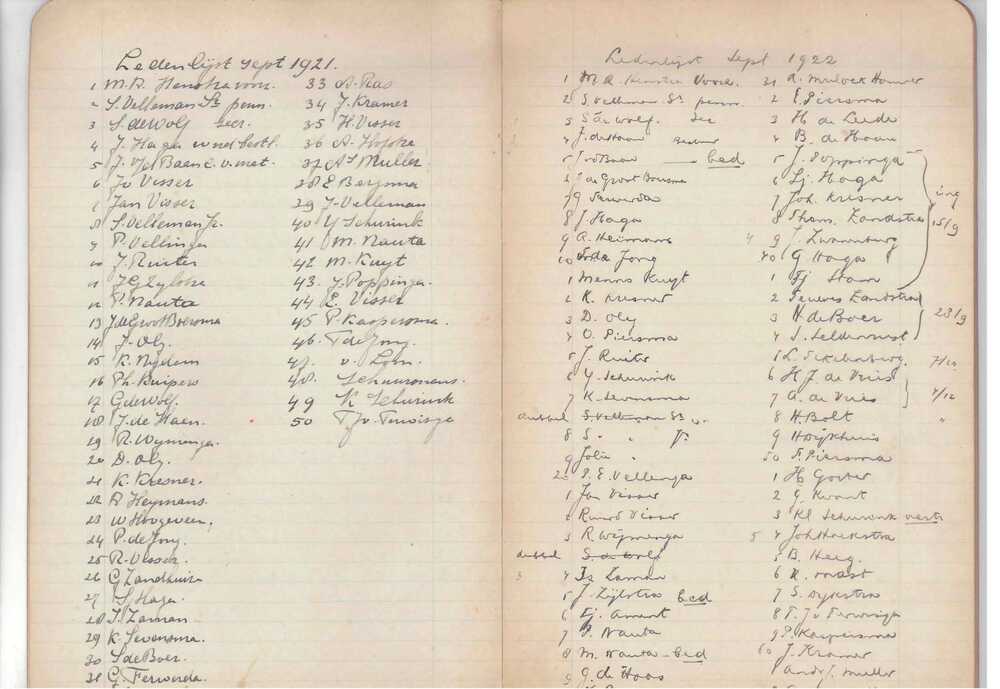 Ledenlijst Sept 1921.
1 M.R. Henstra voorz.
2 S. Velleman Sr penn.
3 S. de Wolf secr.
4 J. Haga
5 J. v/d Baan
6 Jv Visser
7 Jan Visser
8 S. Velleman Jr.
9 P. Vellinga
10 J. Ruiter
11 J Zylstra
12 P. Nauta
13 J de Groot Boersma
14 J. Oly.
15 K. Nijdem
16 Ph. Kuipers
17 G de Wolf.
18 J. de Haan.
19 R. Wymenga.
20 D. Oly.
21 K. Kresner.
22 A Heymans.
23 W Hoogeveen.
24 P. de Jong.
25 R. Visser.
26 G Zandhuis
27 S Haga.
28 I. Zaman
29 K. Sevensma.
30 S de Boer.
31 G. Ferwerda.
33 A. Ras
34 J. Kramer
35 H. Visser
36 A. Hofstra
37 A J Muller
38 E Bergsma
39 J. Velleman
40 Y Schurink
41 M. Nauta
42 M. Kuyt
43. J. Poppinga.
44 E. Visser
45 P. Kaspersma.
46. T de Jong.
47. v. Lym.
48. Schuurmans.
49 K Schurink
50 T Jv Terwisga
Ledenlijst Sept 1922
1 M R Henstra Voorz.
2 S. Velleman Sr penn.
3 S de Wolf. Sec
4 J. de Haan
5 J vd Baan bed
6 J de Groot Boersma
7 G Ferwerda
8 J. Haga
9 A. Heimans
10 de Jong
1 Menno Kuyt
2 K. Kresner
3 D. Oly
4 O. Piersma
5 J. Ruiter
6 Y. Schurink
7 K. Sevensma
dubbel S. Velleman Sr
8 S. " " Jr.
9 John "
20 P. E. Vellenga
1 Jan Visser
2 Ruurd Visser
3 R Wijmenga
dubbel S. de Wolf
4 Is Zaman
5 J. Zijlstra bed
6 Ej. Ament
7 P. Nauta
8 M. Nauta - bed
9 G. de Haas
31 A. Mulock Houwer
2 E. Piersma
3 H de Leede
4 B. de Haan
5 J. Poppinga
6 Lj. Haga
7 Joh. Kresner
8 Zandstra
9 J. Zwanenburg
40 G Hagas
1 Tj Stam
15/9
2 Zandstra
3 H de Boer
4 S. Seldenrust
23/9
5 L. Stellenberg
6 H J. de Vries
7 A. de Vries
8 H. Bolt
9 Hoijkhuis
50 S. Piersma
1 H Gorter
2 G. Kwant
3 Kl Schurink
4 Joh Hoekstra
5 B. Heeg
6 K. Mast
7 S. Dykstra
8 T. Jv Terwisga
9 P. Kaspersma
60 J. Kramer
1 Andr. J. Muller